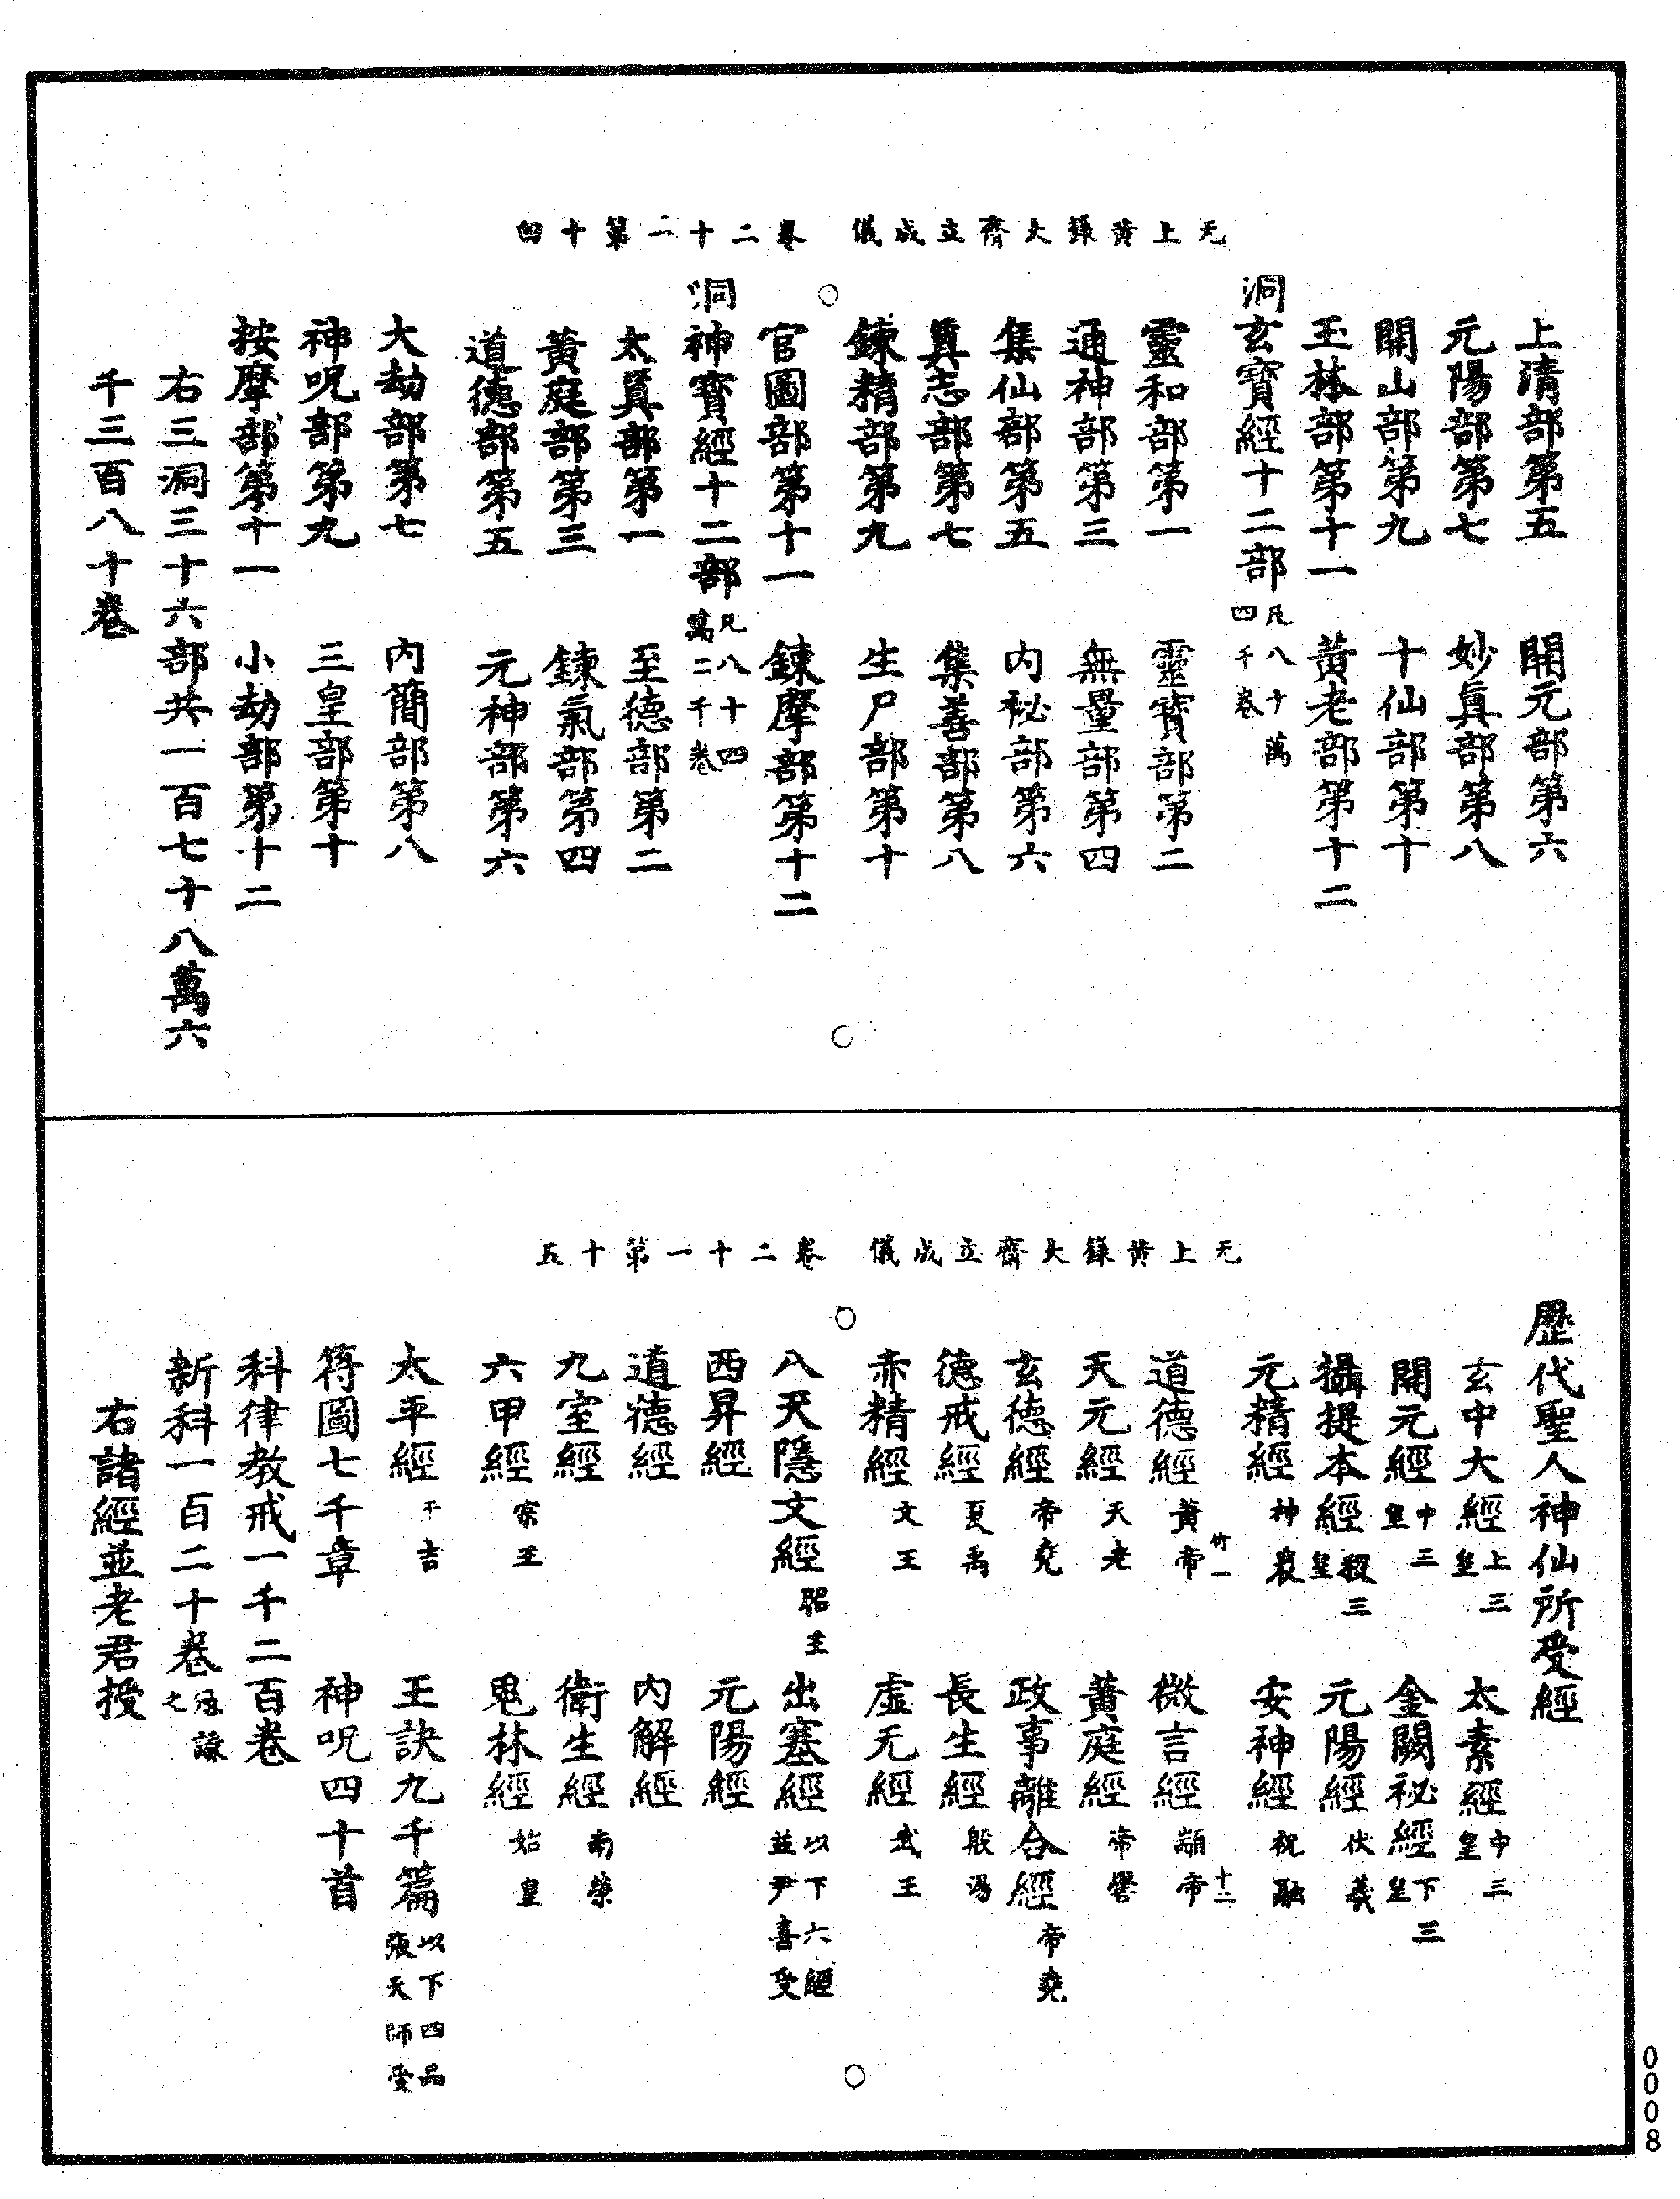 无上黃籙大齋立成儀　卷二十一第十四
上清部第五　開元部第六
元陽部第七　妙真部第八
開山部第九　十仙部第十
玉林部第十一　黃老部第十二
洞玄寶經十二部凡八十萬四千卷
靈和部第一　靈寶部第二
通神部第三　無量部第四
集仙部第五　內秘部第六
真志部第七　集善部第八
鍊精部第九　生尸部第十
官圖部第十一　鍊摩部第十二
洞神寶經十二部凡八十四萬二千卷
太真部第一　至德部第二
黃庭部第三　鍊氣部第四
道德部第五　元神部第六
大劫部第七　內簡部第八
神呪部第九　三皇部第十
按摩部第十一　小劫部第十二
右三洞三十六部共一百七十八萬六
千三百八十卷
无上黃籙大齋立成儀　卷二十一第十五
歷代聖人神仙所受經
玄中大經上三皇　太素經中三皇
開元經中三皇　金闕祕經下三皇
攝提本經三皇　元陽經伏羲
元精經神農　安神經祝融
竹一　十二
道德經黃帝　微言經顓帝
天元經天老　黃庭經帝嚳
玄德經帝堯　政事離合經帝堯
德戒經夏禹　長生經殷湯
赤精經文王　虛无經武王
八天隱文經昭王　出塞經以下六經並尹喜受
西昇經　元陽經
道德經　內解經
九室經　衛生經南榮
六甲經　鬼林經始皇
太平經干吉　玉訣九千篇以下四品張天師受
符圖七千章　神呪四十首
科律教戒一千二百卷
新科一百二十卷寇謙之
右諸經並老君授
0008